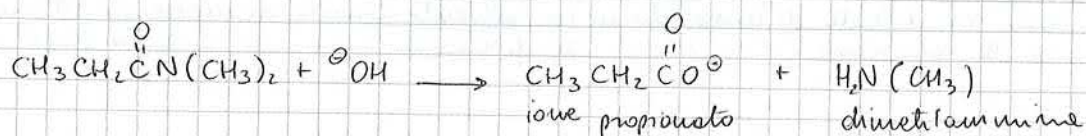 O O
CH₃CH₂C̈N(CH₃)₂ + ⊖OH ⟶ CH₃CH₂C̈O⊖ + H₂N(CH₃)
ione propionato dimetilammina